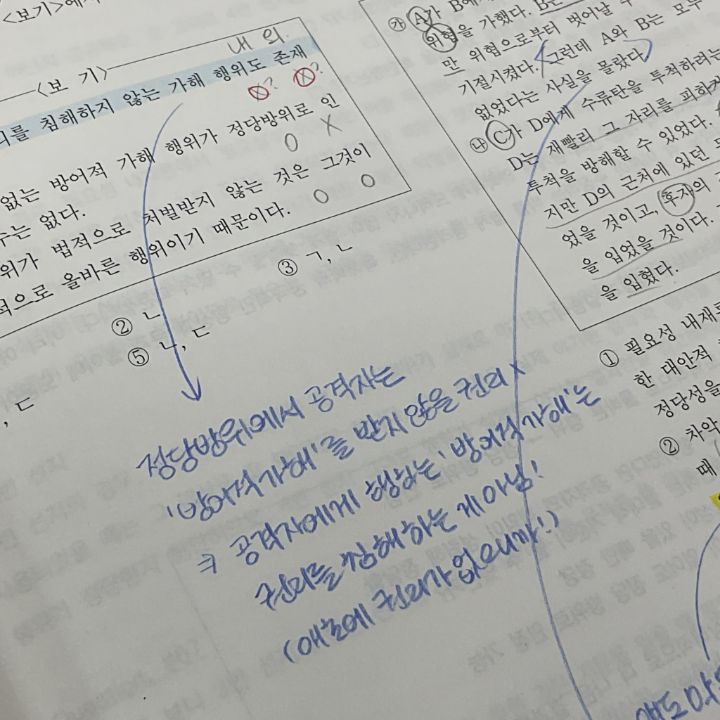 <보기>에
<보 기>
내 외
리를 침해하지 않는 가해 행위도 존재
X? X?
없는 방어적 가해 행위가 정당방위로 인
O X
수는 없다.
위가 법적으로 처벌받지 않는 것은 그것이
적으로 올바른 행위이기 때문이다.
O O
③ ㄱ, ㄴ
② ㄴ
⑤ ㄴ, ㄷ
, ㄷ
정당방위에서 공격자는
'방어적가해'를 받지않을 권리 x
→ 공격자에게 행하는 '방어적가해'는
권리를 침해하는 게 아님!
(애초에 권리가 없으니까!)
㉮ A가 B에
위협을 가했다. B는
만 위협으로부터 벗어날 수
기절시켰다. 그런데 A와 B는 모두
없었다는 사실을 몰랐다.
㉯ C가 D에게 수류탄을 투척하려는
D는 재빨리 그 자리를 피하
투척을 방해할 수 있었다.
지만 D의 근처에 있던
었을 것이고, 후자의
을 입었을 것이다.
을 입혔다.
① 필요성 내재
한 대안적
정당성을
② 차악
때